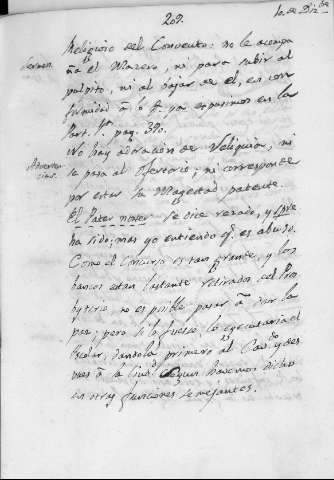 209.
10. de Diz.bre
Sermon.
Religioso del Convento: no le acompa
ña el Mazero, ni para subir al
pulpito, ni al bajar de el, en con
formidad à lo q.e ya expusimos en la
Part. 1.a pag. 390.
Adverten
cias.
No hay adoracion de Reliquia, ni
se pasa al Ofertorio; ni corresponde
por estar la Magestad patente.
El Pater noster se dice rezado, y spre
ha sido; mas yo entiendo q.e es abuso.
Como el Concurso es tan grande, y los
bancos estan bastante retirados del Pres
byterio no es posible pasar à dar la
paz; pero si lo fuese lo executaria el
Escolar, dandola primero al
ues à la Ciud. segun havemos dicho
en otras funciones semejantes.